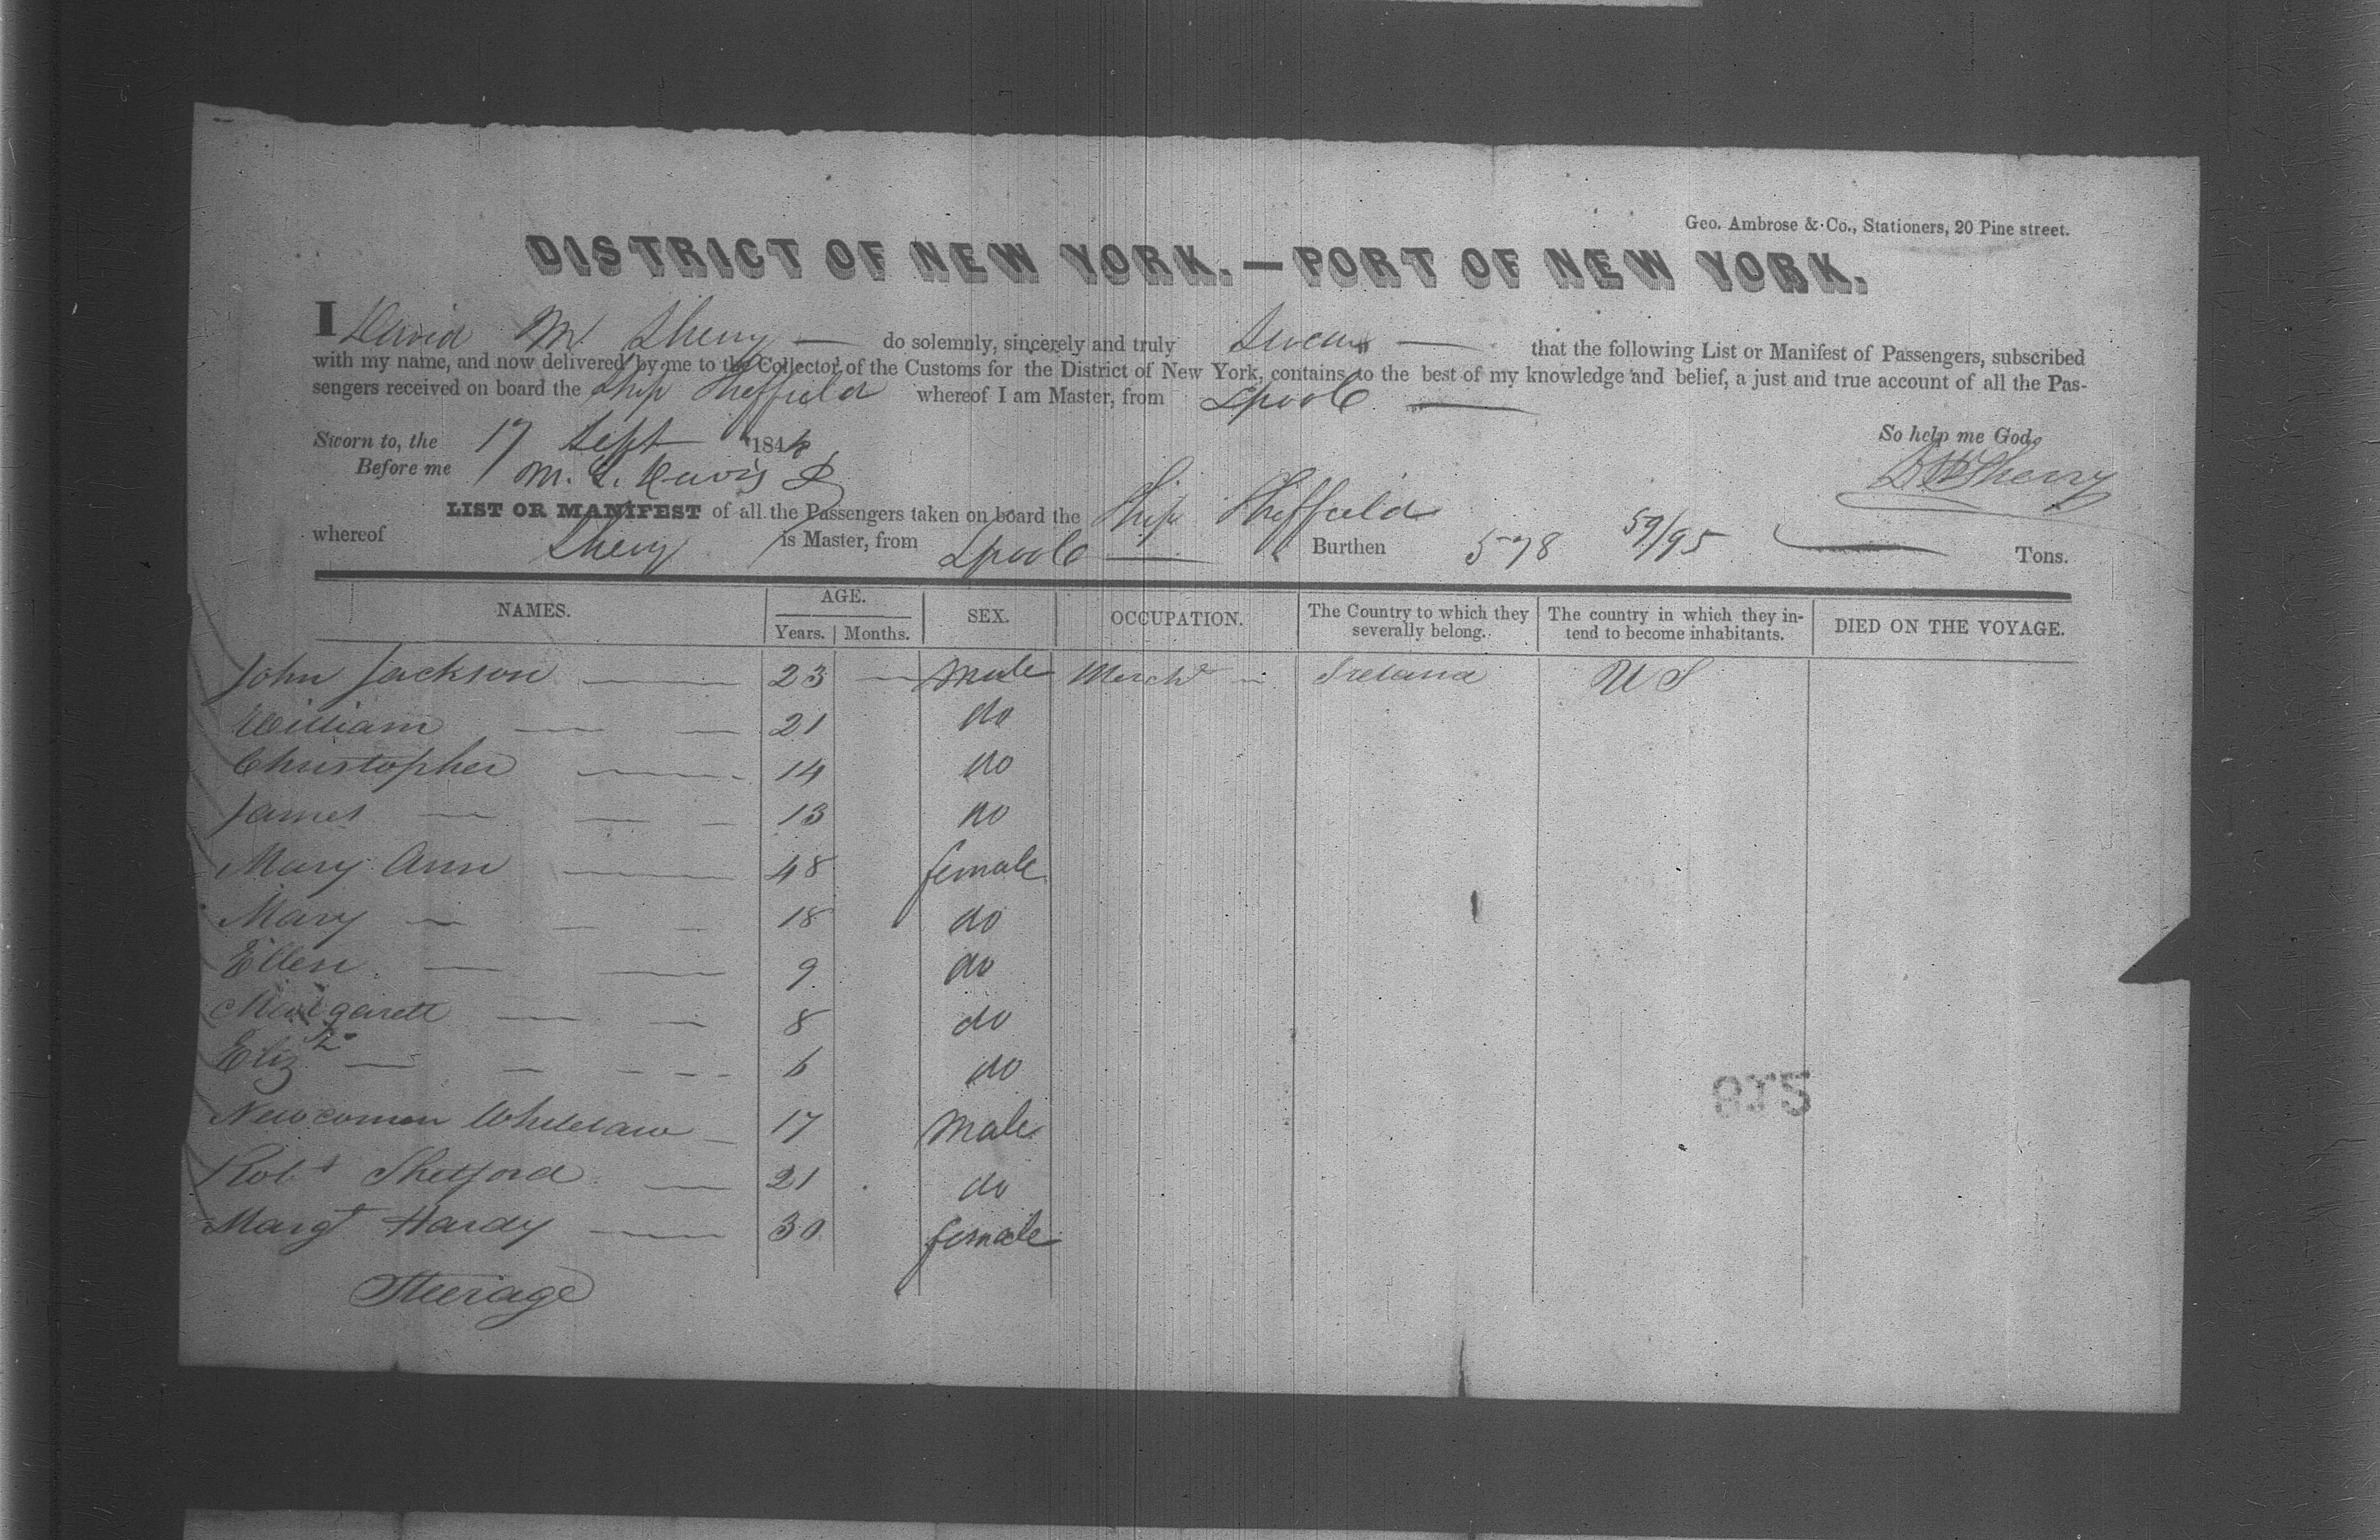 Geo. Ambrose & Co., Stationers, 20 Pine street.
DISTRICT OF NEW YORK.—PORT OF NEW YORK.
I David M. Sherry — do solemnly, sincerely and truly Swear — that the following List or Manifest of Passengers, subscribed
with my name, and now delivered by me to the Collector of the Customs for the District of New York, contains to the best of my knowledge and belief, a just and true account of all the Pas-
sengers received on board the Ship Sheffield whereof I am Master, from Lpool —
Sworn to, the 17 Sept 184 So help me God.
Before me M. L. Davis D M Sherry
LIST OR MANIFEST of all the Passengers taken on board the Ship Sheffield
whereof Sherry is Master, from Lpool — Burthen 578 59/95 Tons.
NAMES. AGE. Years. Months. SEX. OCCUPATION. The Country to which they severally belong. The country in which they intend to become inhabitants. DIED ON THE VOYAGE.
John Jackson — 23 — Male Mercht — Ireland U S
William — — 21 do
Christopher — 14 do
James — — — 13 do
Mary Ann — 48 female
Mary — — — 18 do
Ellen — — 9 do
Margarett — — 8 do
Elizth — — — 6 do
Newcomen Whitelaw — 17 Male
Robt Shetford — 21 do
Margt Hardy — 30 female
Steerage